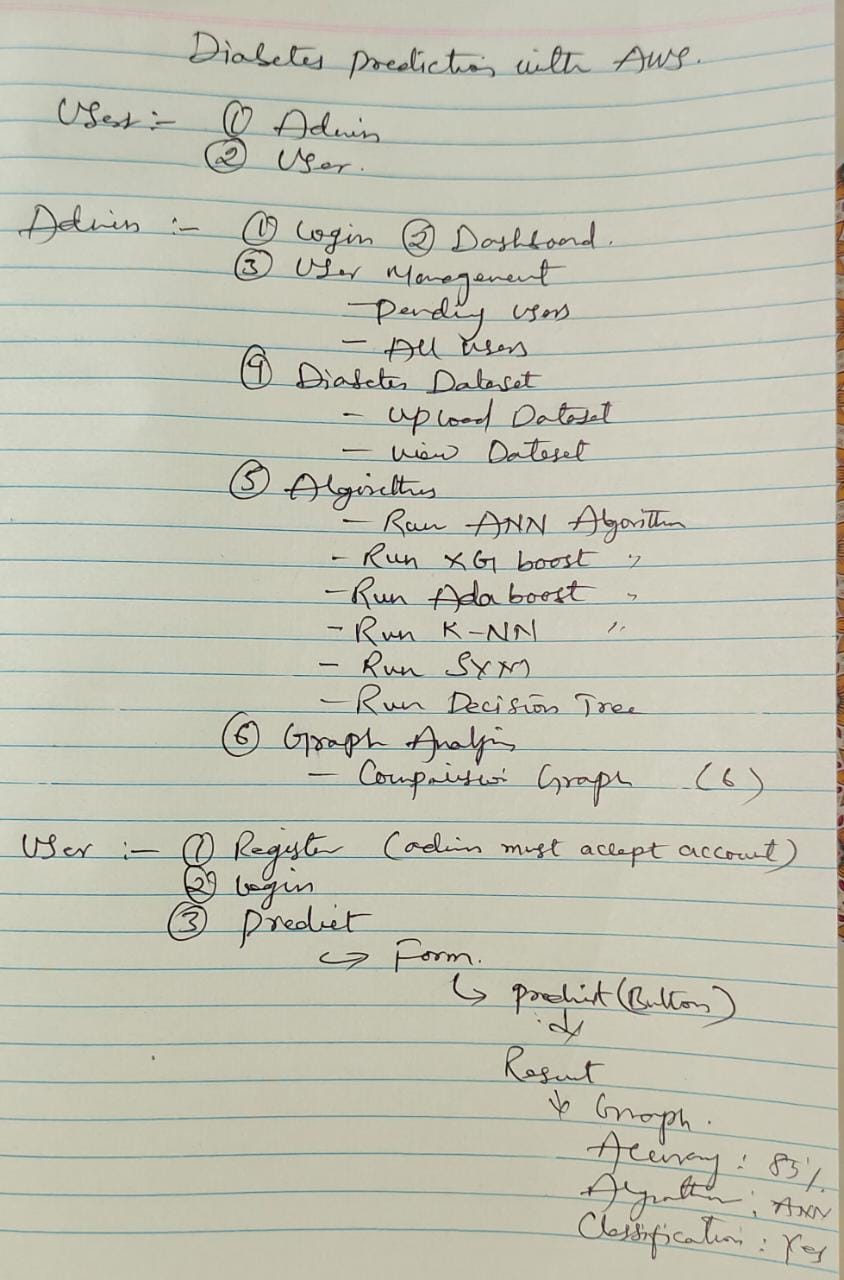 Diabetes Prediction with AWS.
User :- ① Admin
② User.
Admin :- ① Login ② Dashboard.
③ User Management
- Pending users
- All users
④ Diabetes Dataset
- Upload Dataset
- View Dataset
⑤ Algorithms
- Run ANN Algorithm
- Run XG boost "
- Run Ada boost "
- Run K-NN "
- Run SVM
- Run Decision Tree
⑥ Graph Analysis
- Comparison Graph (6)
User :- ① Register (admin must accept account)
② Login
③ Predict
↪ Form.
↳ predict (Button)
↓
Result
↓ Graph.
Accuracy : 85%
Algorithm : ANN
Classification : Yes